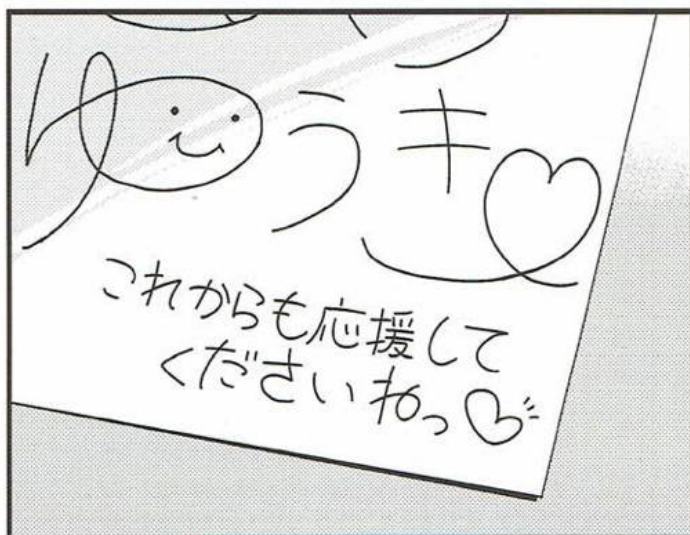 ゆうき♡
これからも応援して
くださいねっ♡